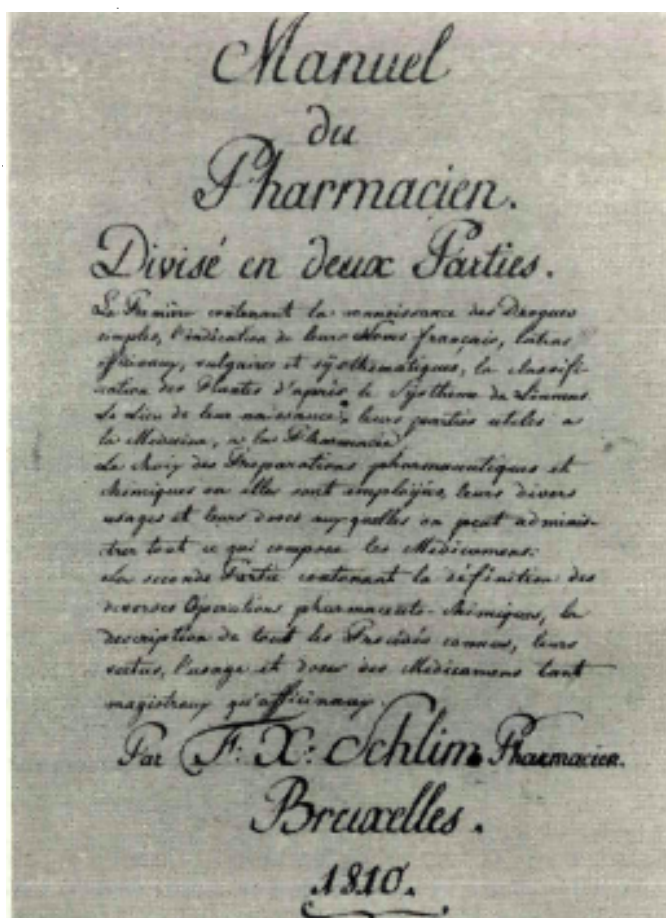 Manuel
du
Pharmacien.
Divisé en deux Parties.
La Premiere contenant la connoissance des Drogues
simples, l'indication de leurs Noms français, latins
officinaux, vulgaires et systhématiques, la classifi-
cation des Plantes d'après le Systhême de Linneus
Le Lieu de leur naissance, leurs parties utiles a
la Médecine, a la Pharmacie
Le choix des Préparations pharmaceutiques et
chimiques ou elles sont employées, leurs divers
usages et leurs doses auxquelles on peut adminis-
trer tout ce qui compose les Médicamens.
La seconde Partie contenant la définition des
diverses Opérations pharmaceuto-chimiques, la
description de tout les Procédés connus, leurs
vertus, l'usage et doses des Médicamens tant
magistraux qu'officinaux.
Par F: X: Schlim Pharmacien.
Bruxelles.
1810.